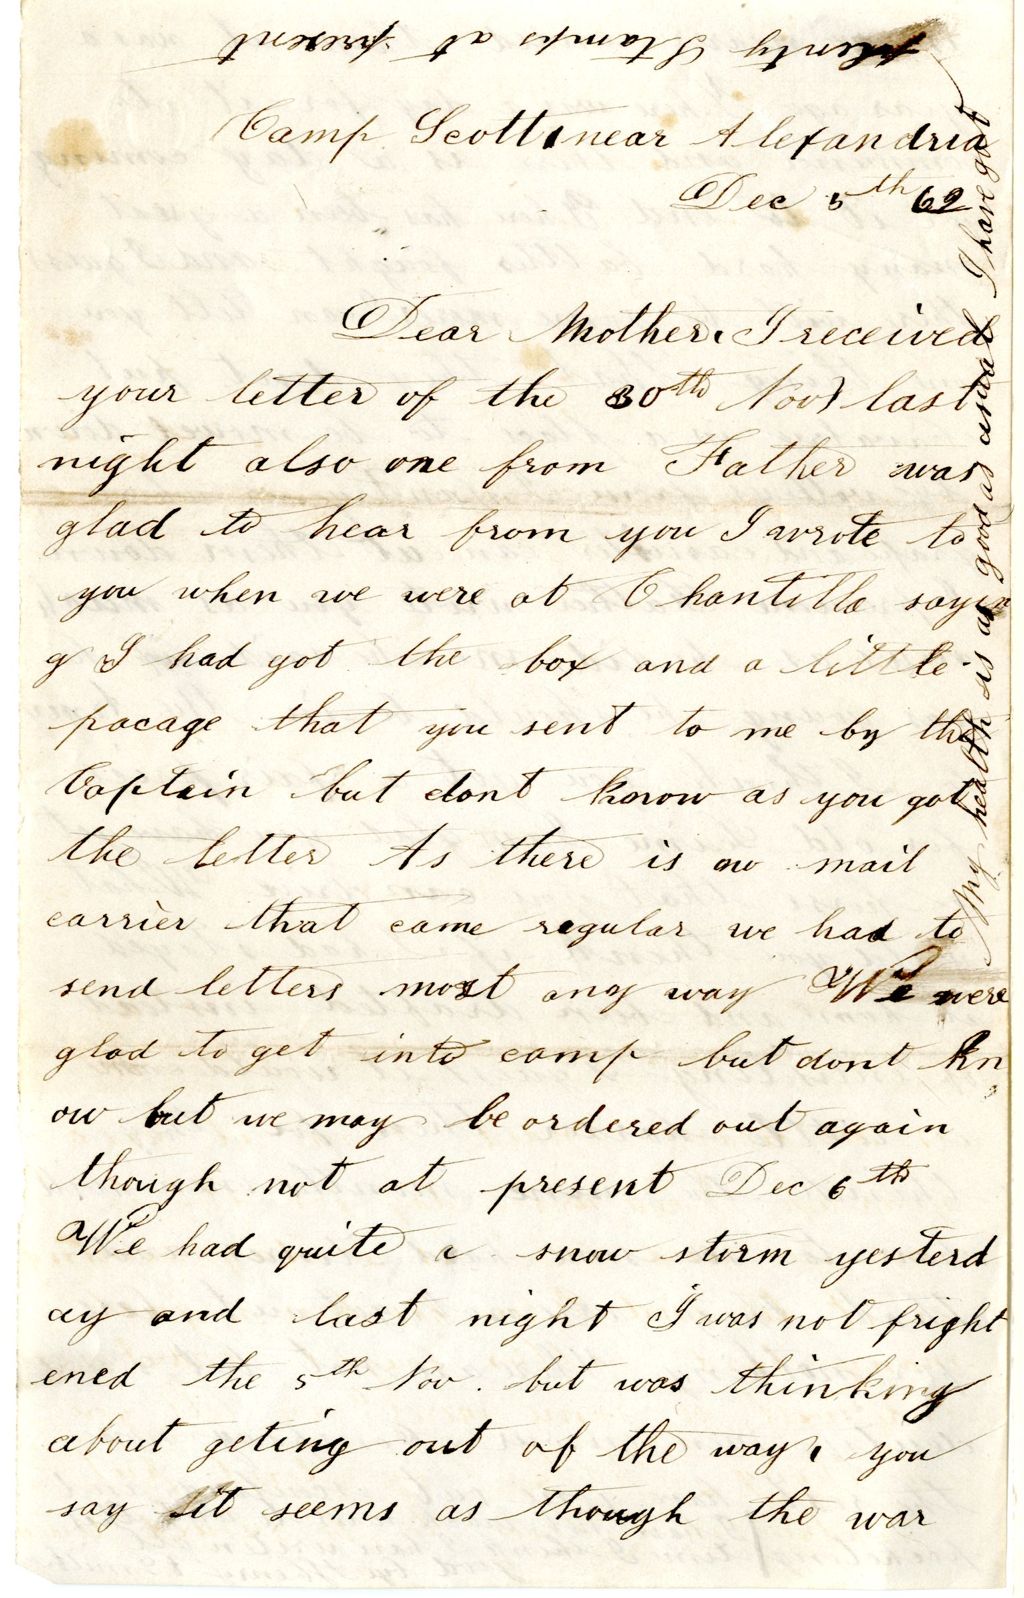 Camp Scott near Alexandria
Dec 5th 62
Dear Mother. I received
your letter of the 30th Nov) last
night also one from Father was
glad to hear from you I wrote to
you when we were at Chantilla sayin
g I had got the box and a little
pacage that you sent to me by the
Captain but dont know as you got
the letter As there is no mail
carrier that came regular we had to
send letters most any way We were
glad to get into camp but dont kn
ow but we may be ordered out again
though not at present Dec 6th
We had quite a snow storm yesterd
ay and last night I was not fright
ened the 5th Nov. but was thinking
about geting out of the way, you
say it seems as though the war
My health is as good as usual I have got
plenty Stamps at present